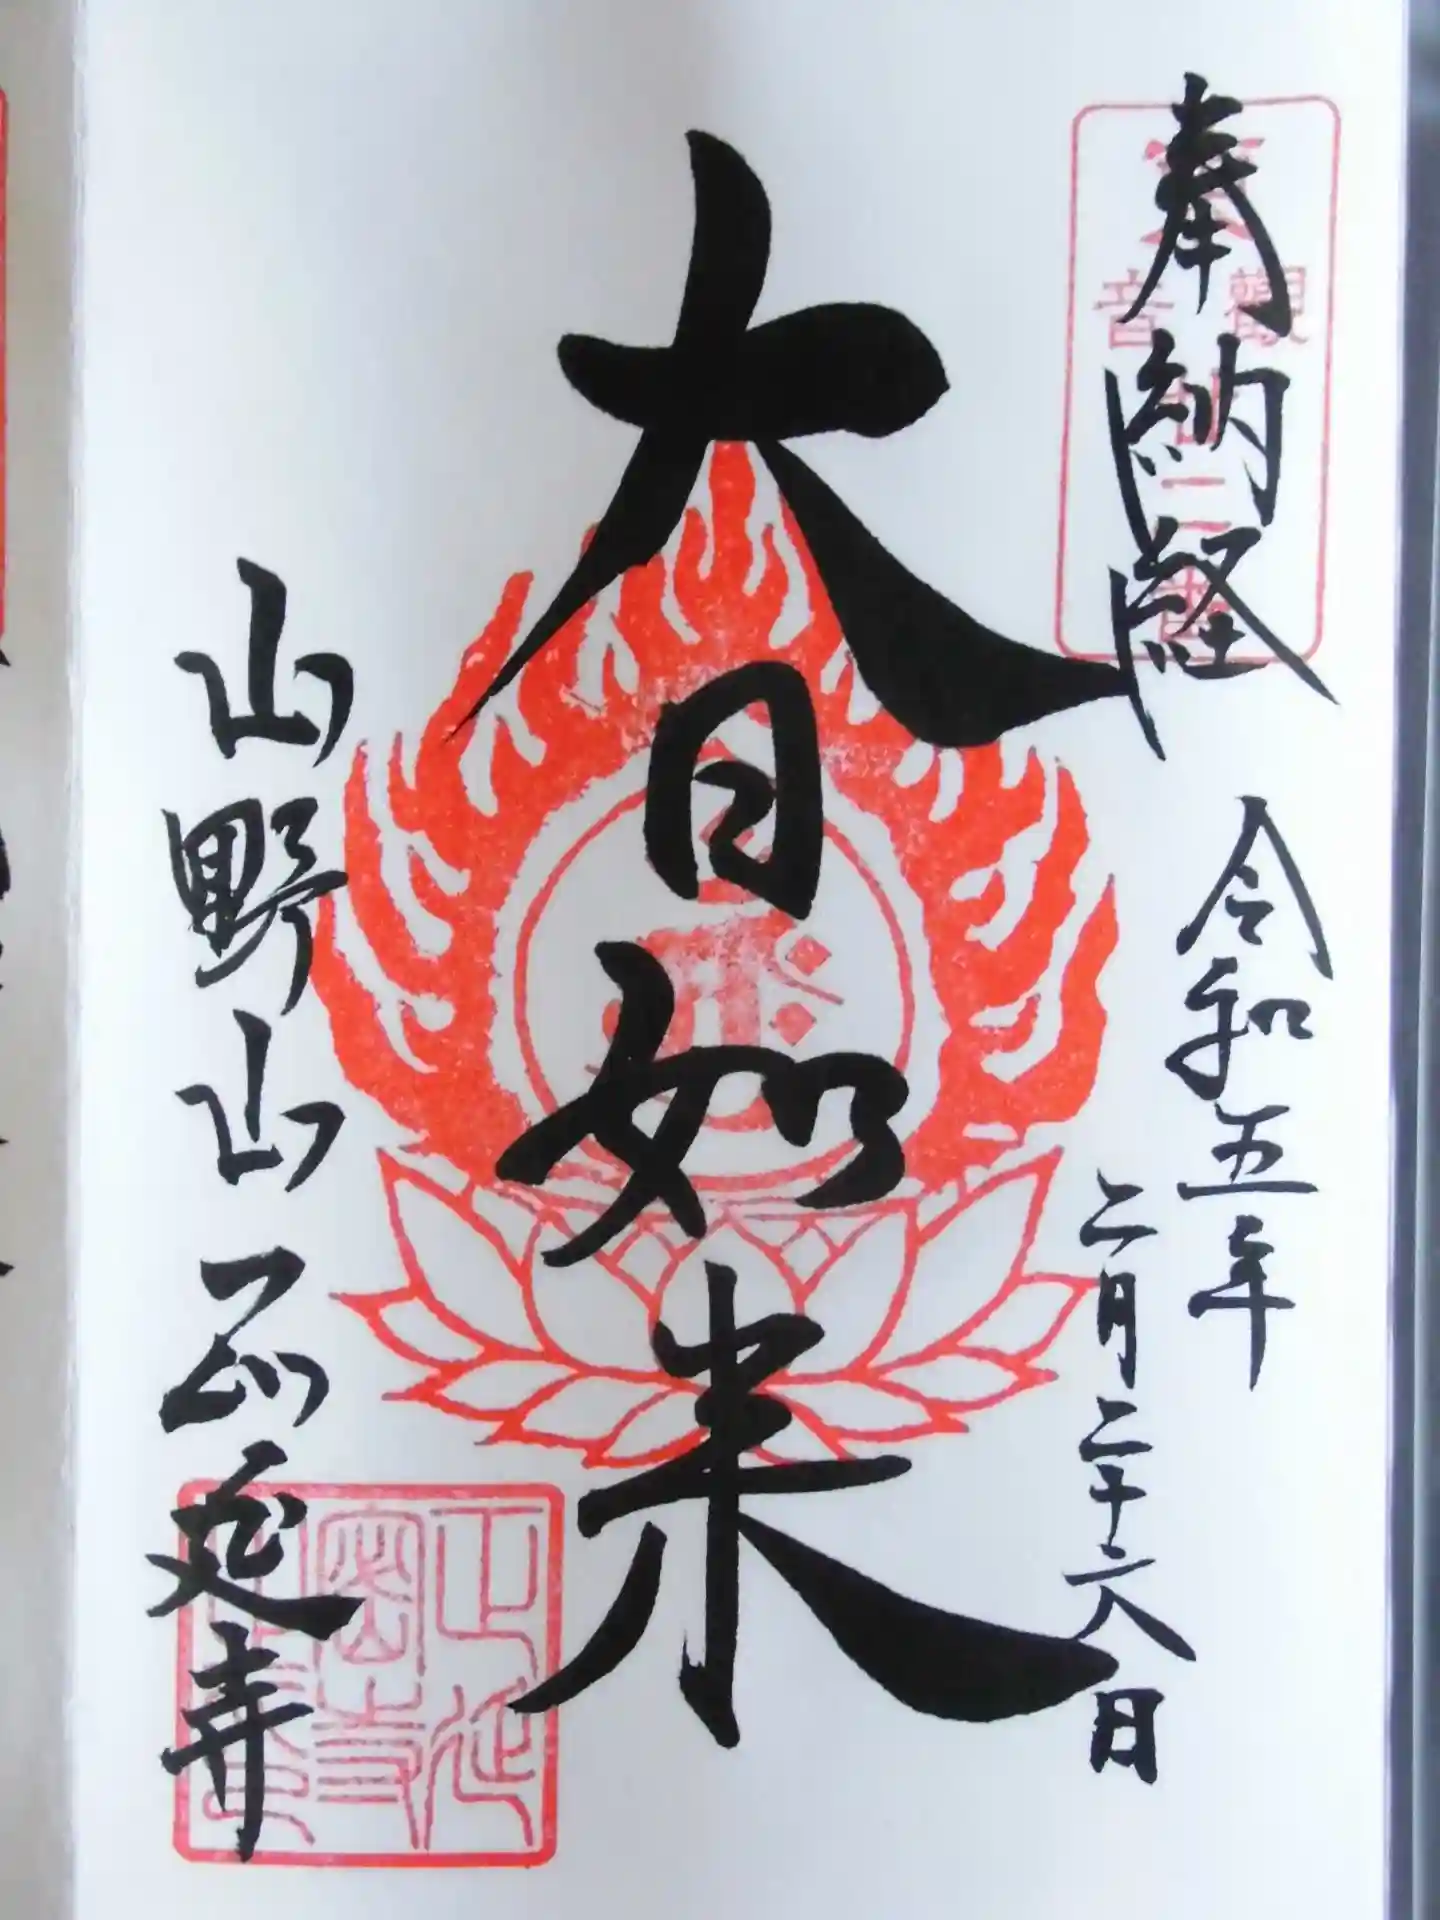 奉納経
令和五年
二月二十六日
大日如来
山野山
正延寺
觀音